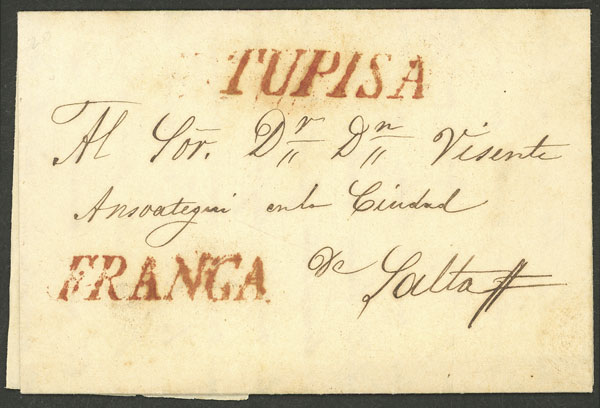 TUPISA
Al Sōr. Dr Dn Visente
Ansoategui enla Ciudad
de Salta
FRANCA